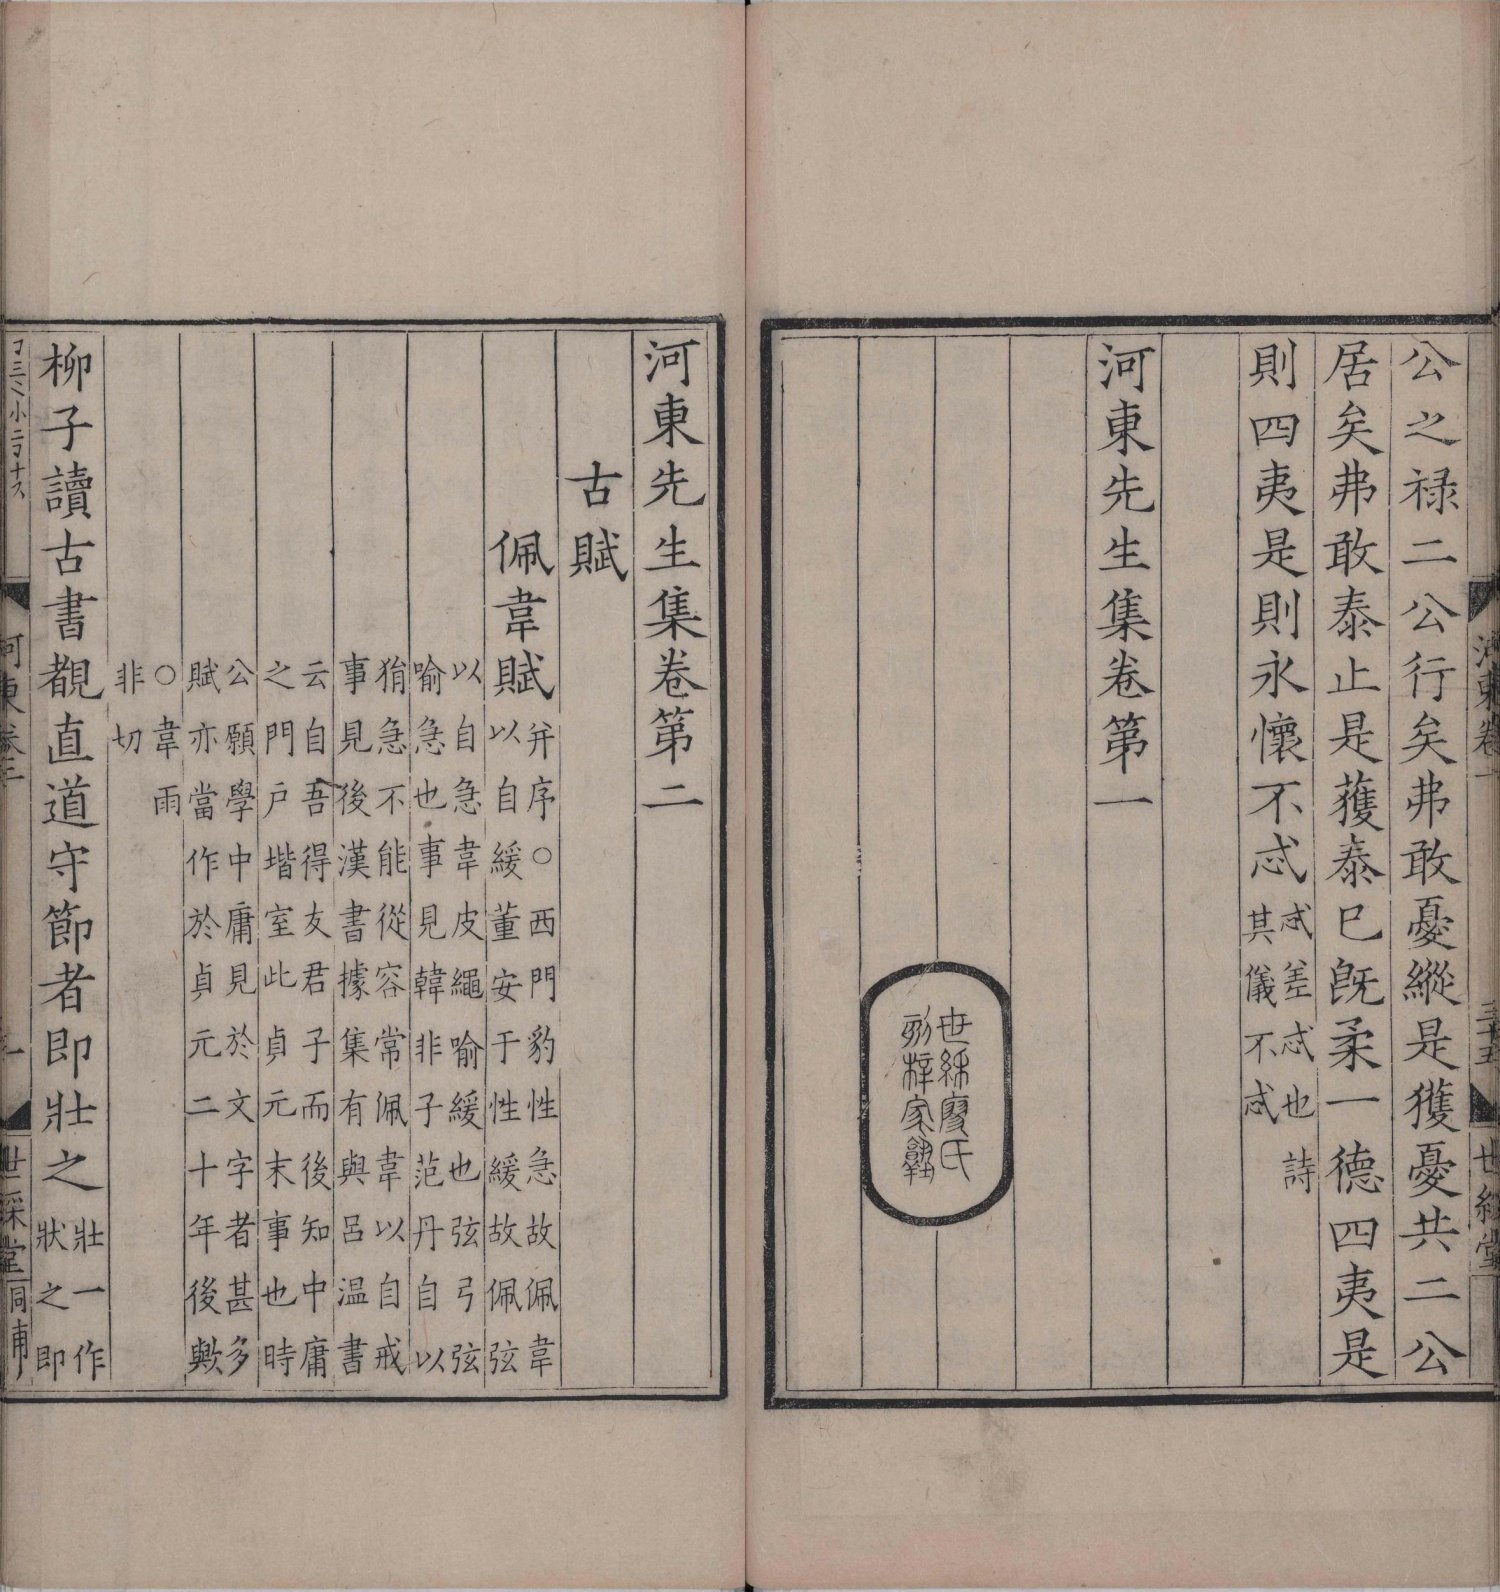 河東卷一 三十五 世綵堂
公之禄二公行矣弗敢憂縱是獲憂共二公
居矣弗敢泰止是獲泰已既柔一德四夷是
則四夷是則永懷不忒忒差忒也詩其儀不忒
河東先生集卷第一
世綵廖氏
刻梓家塾
河東先生集卷第二
古賦
佩韋賦并序○西門豹性急故佩韋以自緩董安于性緩故佩弦
以自急韋皮繩喻緩也弦弓弦喻急也事見韓非子范丹自以
狷急不能從容常佩韋以自戒事見後漢書據集有與呂温書
云自吾得友君子而後知中庸之門户堦室此貞元末事也時
公願學中庸見於文字者甚多賦亦當作於貞元二十年後歟
○韋雨非切
柳子讀古書覩直道守節者即壯之壯一作狀之即
河東卷二 一 世綵堂